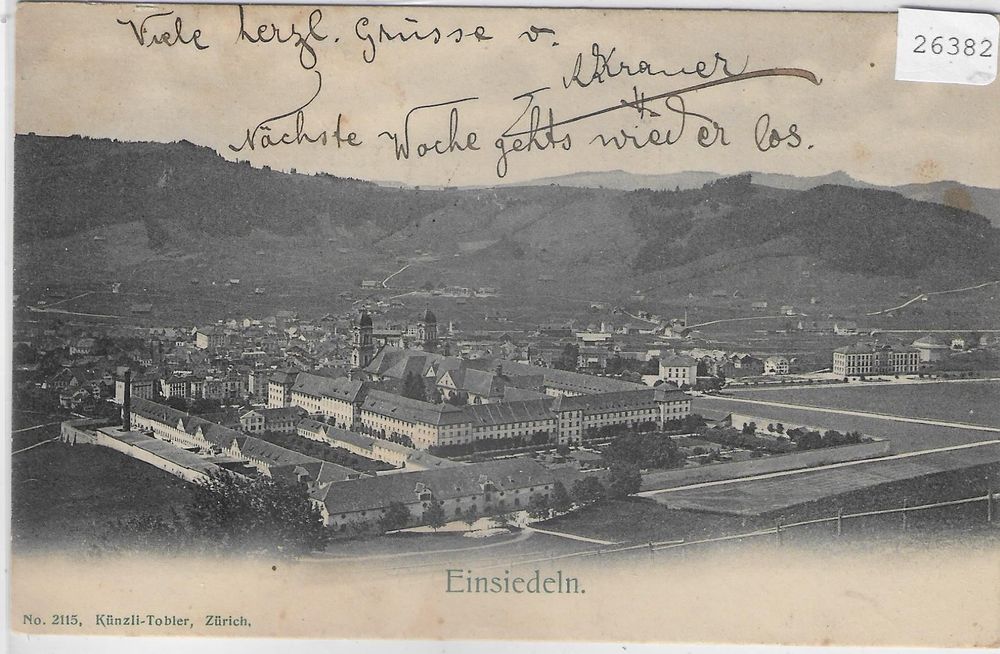 Viele herzl. Grüsse v.
26382
Kramer
Nächste Woche gehts wieder los.
Einsiedeln.
No. 2115, Künzli-Tobler, Zürich,